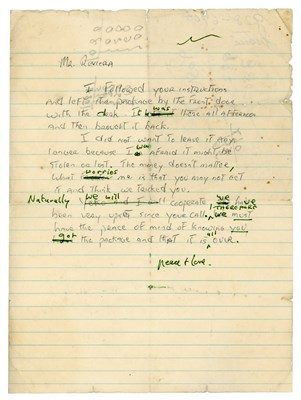 Mr. Riviera
I followed your instructions
and left the package by the front door
with the desk. It was there all afternoon
and then brought it back.
I did not want to leave it any
longer because I was afraid it might be
stolen or lost. The money doesn't matter,
what worries me is that you may not get
it and think we tricked you.
Naturally we will cooperate we have
been very upset since your call, therefore we must
have the peace of mind of knowing you
got the package and that it is all over.
peace & love.